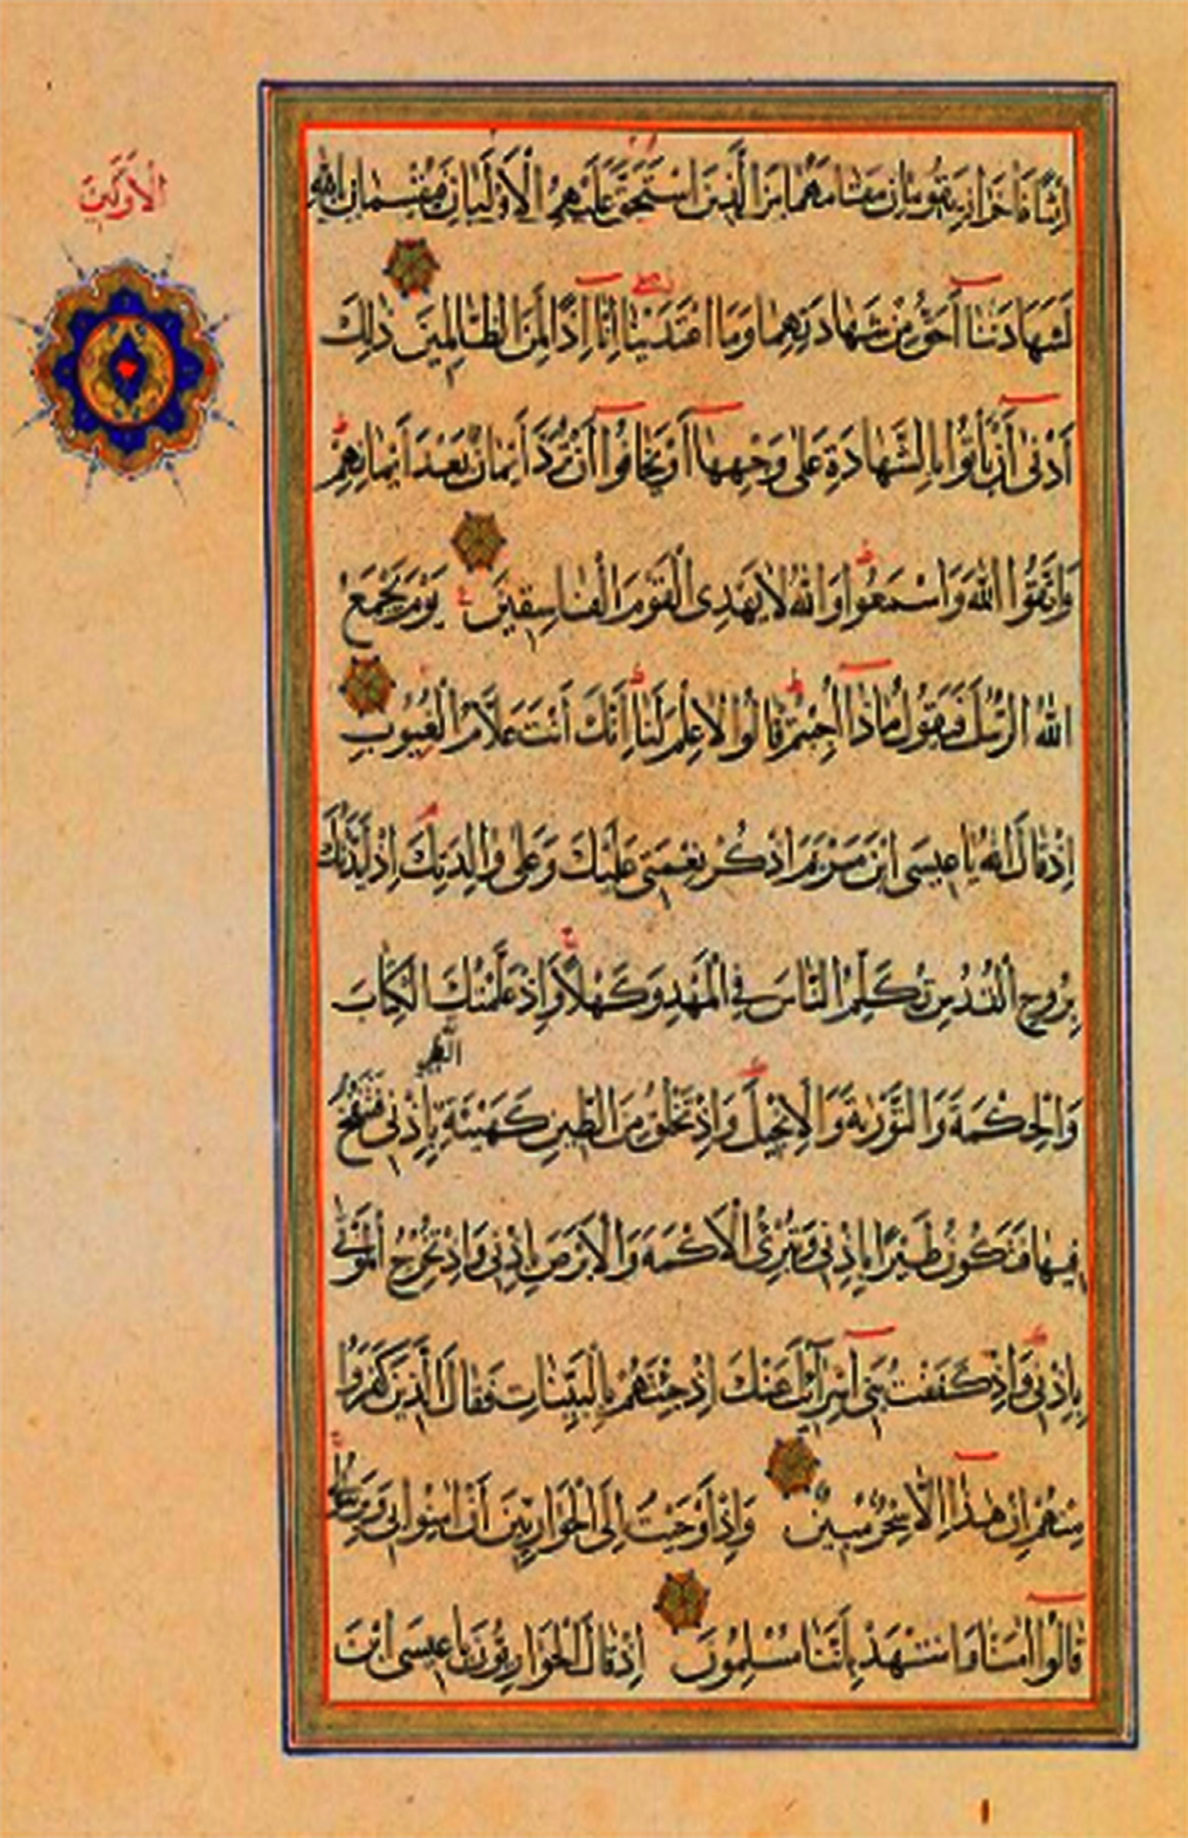 الاولين
اِثْمًا فَاٰخَرَانِ يَقُومَانِ مَقَامَهُمَا مِنَ الَّذِينَ اسْتَحَقَّ عَلَيْهِمُ الْاَوْلَيَانِ فَيُقْسِمَانِ بِاللهِ
لَشَهَادَتُنَا اَحَقُّ مِنْ شَهَادَتِهِمَا وَمَا اعْتَدَيْنَا اِنَّا اِذًا لَمِنَ الظَّالِمِينَ ذٰلِكَ
اَدْنٰى اَنْ يَاْتُوا بِالشَّهَادَةِ عَلٰى وَجْهِهَا اَوْ يَخَافُوا اَنْ تُرَدَّ اَيْمَانٌ بَعْدَ اَيْمَانِهِمْ
وَاتَّقُوا اللهَ وَاسْمَعُوا وَاللهُ لَا يَهْدِى الْقَوْمَ الْفَاسِقِينَ يَوْمَ يَجْمَعُ
اللهُ الرُّسُلَ فَيَقُولُ مَاذَا اُجِبْتُمْ قَالُوا لَا عِلْمَ لَنَا اِنَّكَ اَنْتَ عَلَّامُ الْغُيُوبِ
اِذْ قَالَ اللهُ يَا عِيسَى ابْنَ مَرْيَمَ اذْكُرْ نِعْمَتِى عَلَيْكَ وَعَلٰى وَالِدَتِكَ اِذْ اَيَّدْتُكَ
بِرُوحِ الْقُدُسِ تُكَلِّمُ النَّاسَ فِى الْمَهْدِ وَكَهْلًا وَاِذْ عَلَّمْتُكَ الْكِتَابَ
الطَّيْرِ
وَالْحِكْمَةَ وَالتَّوْرٰيةَ وَالْاِنْجِيلَ وَاِذْ تَخْلُقُ مِنَ الطِّينِ كَهَيْئَةِ بِاِذْنِى فَتَنْفُخُ
فِيهَا فَتَكُونُ طَيْرًا بِاِذْنِى وَتُبْرِئُ الْاَكْمَهَ وَالْاَبْرَصَ بِاِذْنِى وَاِذْ تُخْرِجُ الْمَوْتٰى
بِاِذْنِى وَاِذْ كَفَفْتُ بَنِى اِسْرَآئِلَ عَنْكَ اِذْ جِئْتَهُمْ بِالْبَيِّنَاتِ فَقَالَ الَّذِينَ كَفَرُوا
مِنْهُمْ اِنْ هٰذَا اِلَّا سِحْرٌ مُبِينٌ وَاِذْ اَوْحَيْتُ اِلَى الْحَوَارِيِّينَ اَنْ اٰمِنُوا بِى وَبِرَسُولِى
قَالُوا اٰمَنَّا وَاشْهَدْ بِاَنَّنَا مُسْلِمُونَ اِذْ قَالَ الْحَوَارِيُّونَ يَا عِيسَى ابْنَ